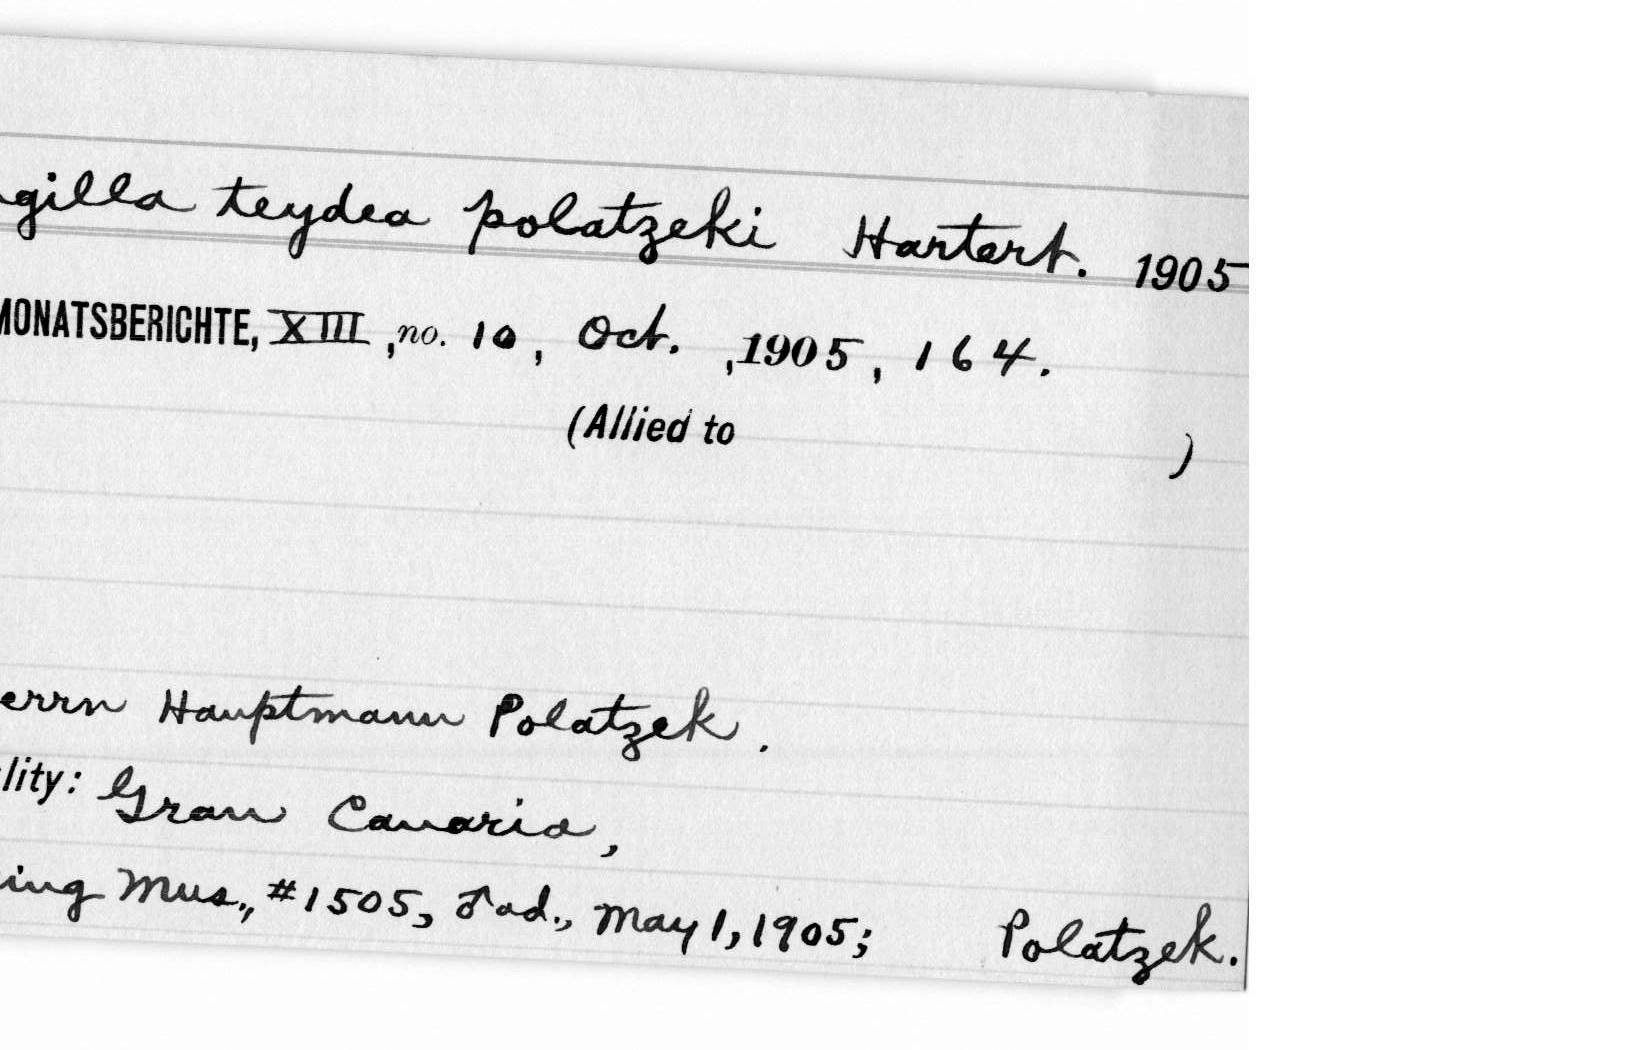 gilla teydea polatzeki Hartert. 1905
MONATSBERICHTE, XIII, no. 10, Oct. , 1905, 164.
(Allied to )
errn Hauptmann Polatzek.
lity: Gran Canaria,
ing Mus., #1505, ♂ ad., May 1, 1905; Polatzek.